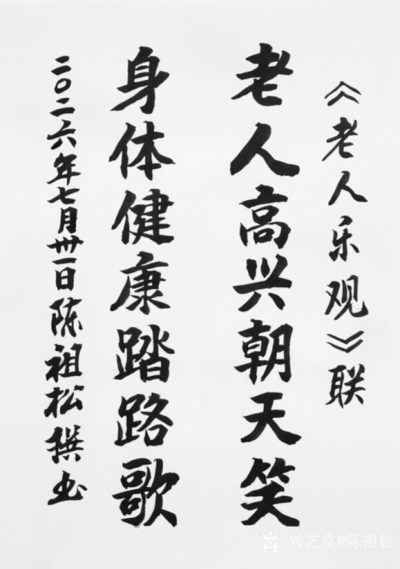 《老人乐观》联
老人高兴朝天笑
身体健康踏路歌
二〇二六年七月卅一日陈祖松撰书
兴艺堂@陈祖松